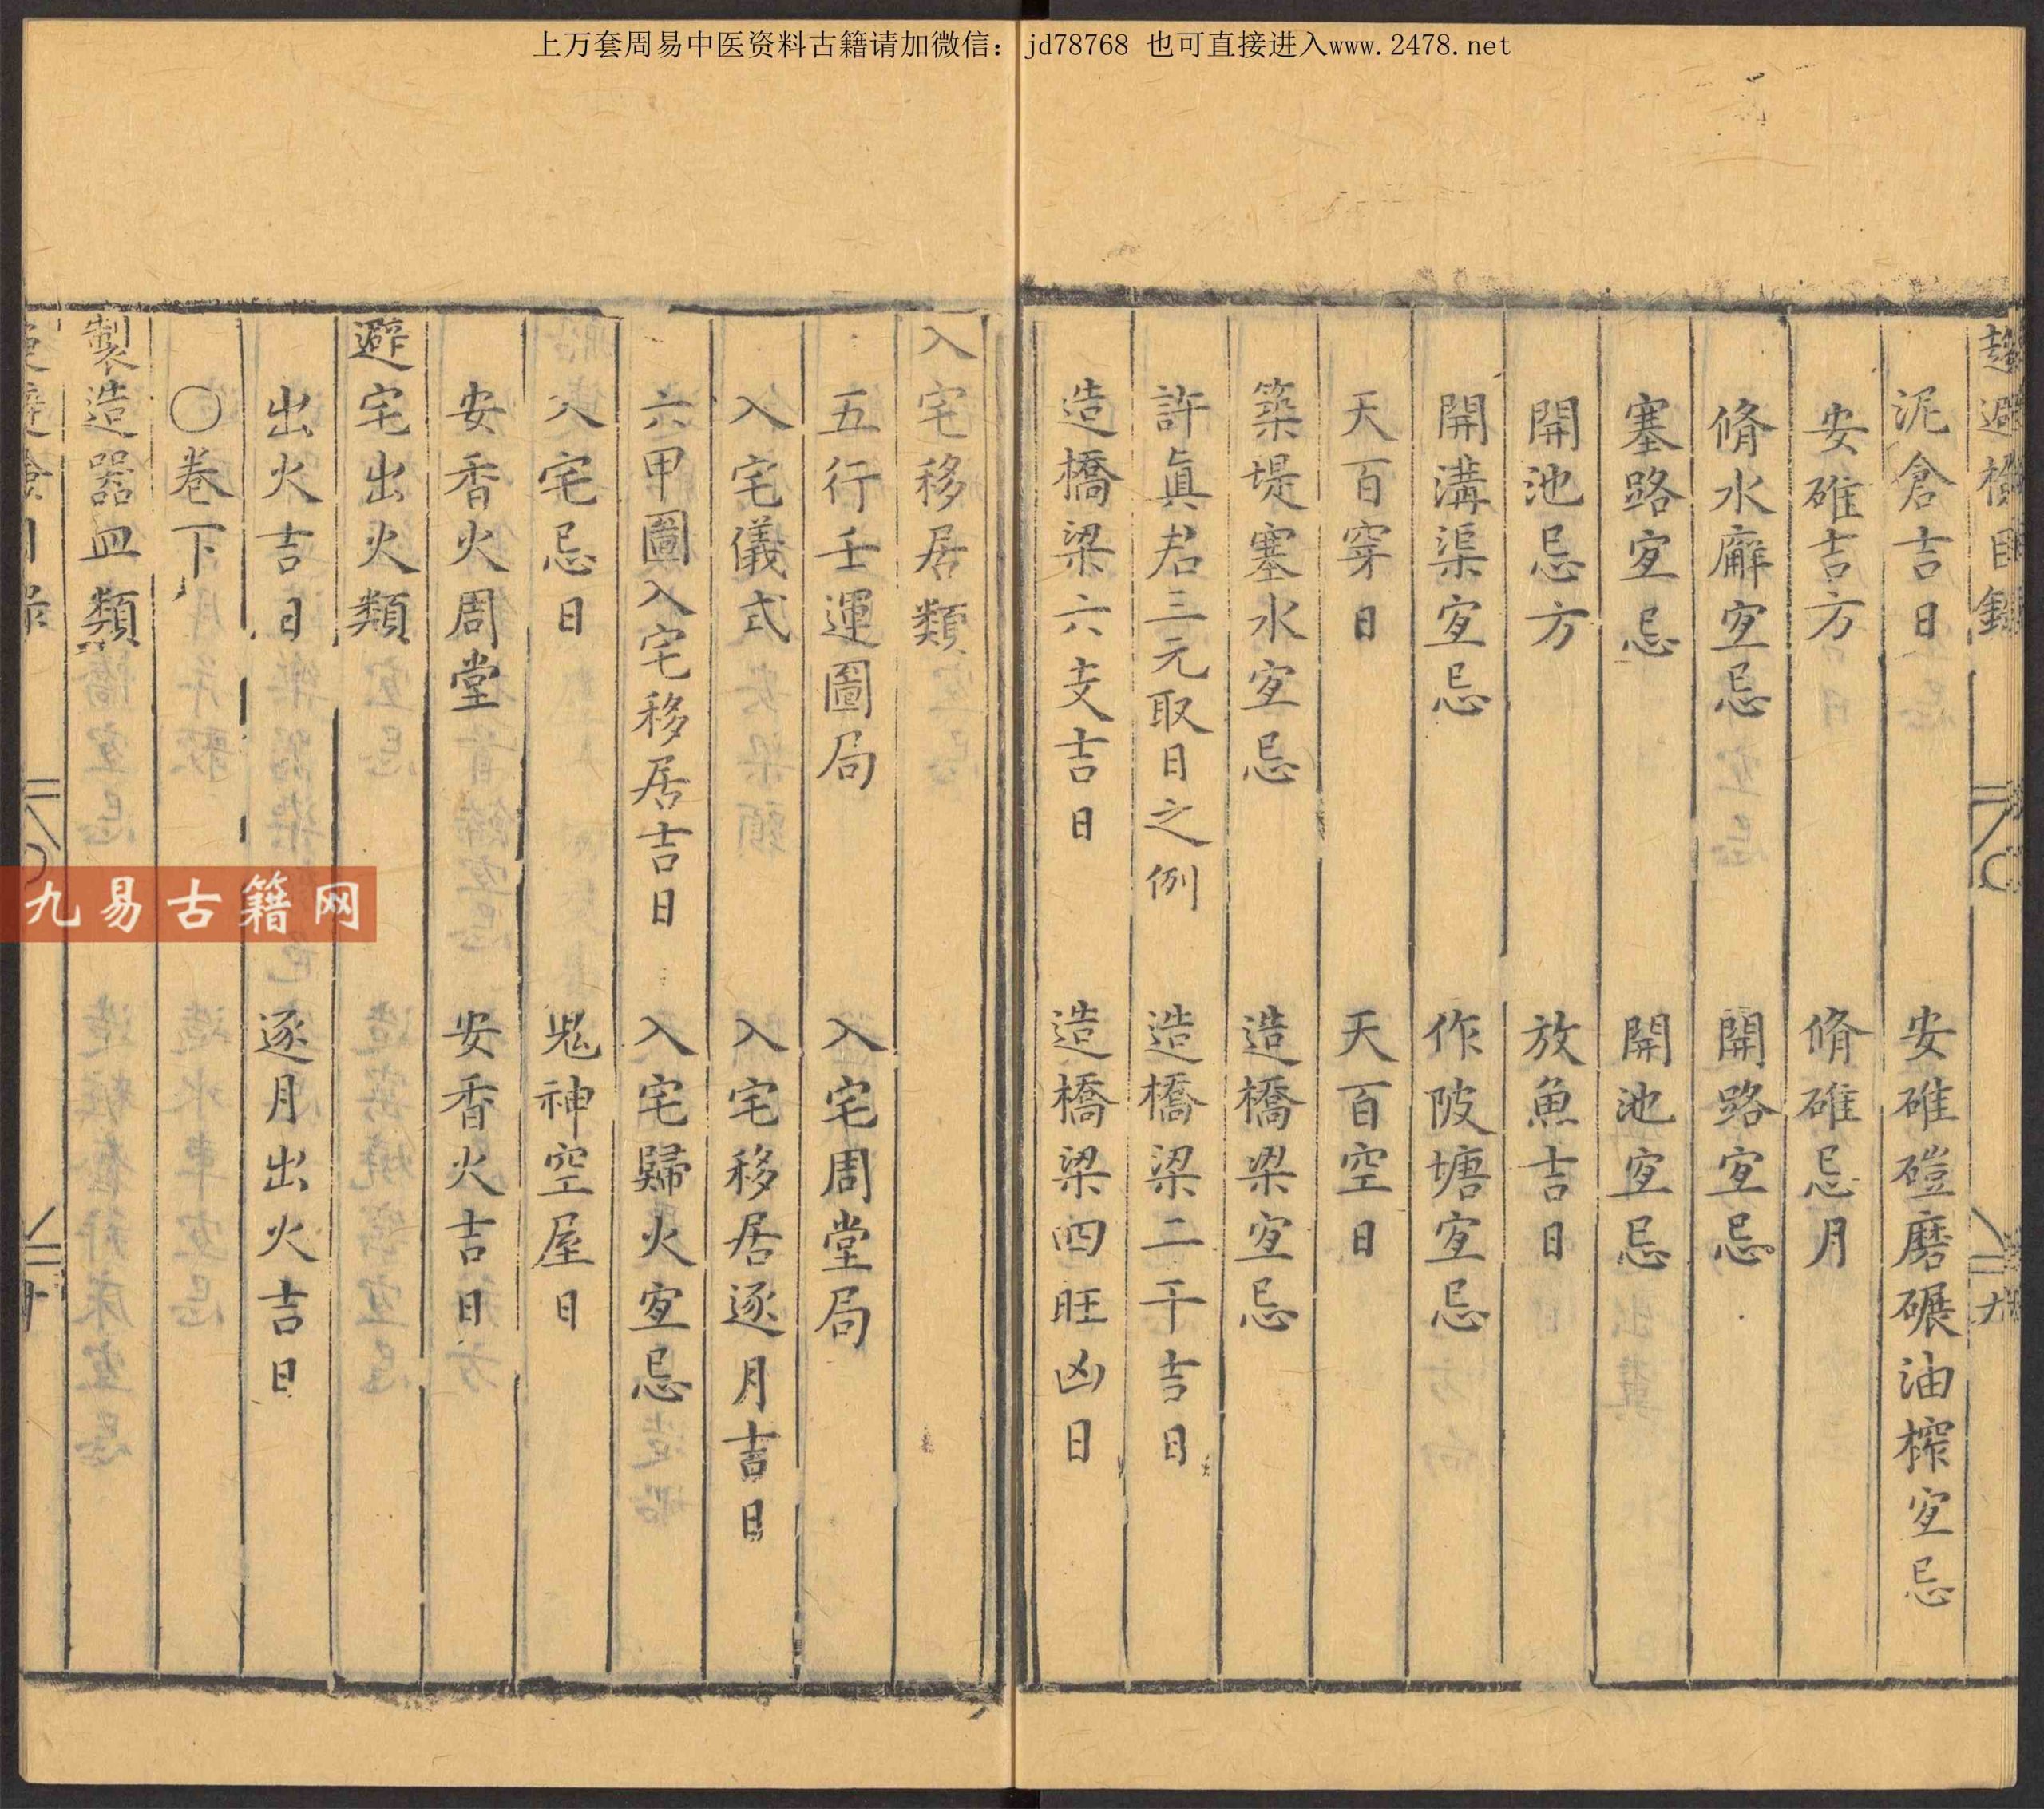 上万套周易中医资料古籍请加微信：jd78768 也可直接进入www.2478.net
泥倉吉日　安碓磑磨碾油榨宜忌
安碓吉方　脩碓忌月
脩水廨宜忌　開路宜忌
塞路宜忌　開池宜忌
開池忌方　放魚吉日
開溝渠宜忌　作陂塘宜忌
天百穿日　天百空日
築堤塞水宜忌　造橋梁宜忌
許眞君三元取日之例　造橋梁二干吉日
造橋梁六支吉日　造橋梁四旺凶日
入宅移居類
五行壬運圖局　入宅周堂局
入宅儀式　入宅移居逐月吉日
六甲圖入宅移居吉日　入宅歸火宜忌
入宅忌日　鬼神空屋日
安香火周堂　安香火吉日
避宅出火類
出火吉日　逐月出火吉日
〇卷下
製造器皿類
九易古籍网